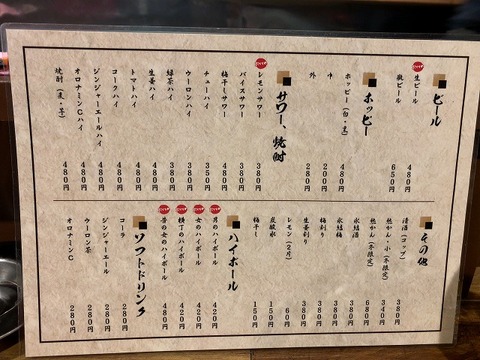 ビール
生ビール 480円
瓶ビール 650円
ホッピー
ホッピー（白・黒） 480円
中 200円
外 280円
サワー、焼酎
レモンサワー 380円
バイスサワー 380円
梅干サワー 480円
チューハイ 350円
ウーロンハイ 380円
緑茶ハイ 380円
生姜ハイ 480円
トマトハイ 480円
コークハイ 480円
ジンジャーエールハイ 480円
オロナミンCハイ 480円
焼酎（麦・芋） 480円
その他
清酒（コップ） 380円
熱かん・小（冬限定） 340円
熱かん（冬限定） 680円
氷結酒 380円
氷結梅 380円
梅割り 380円
生姜割り 380円
レモン（2片） 60円
炭酸水 150円
梅干し 150円
ハイボール
男のハイボール 420円
女のハイボール 420円
横丁のハイボール 400円
昔の女のハイボール 480円
ソフトドリンク
コーラ 280円
ジンジャーエール 280円
ウーロン茶 280円
オロナミンC 280円